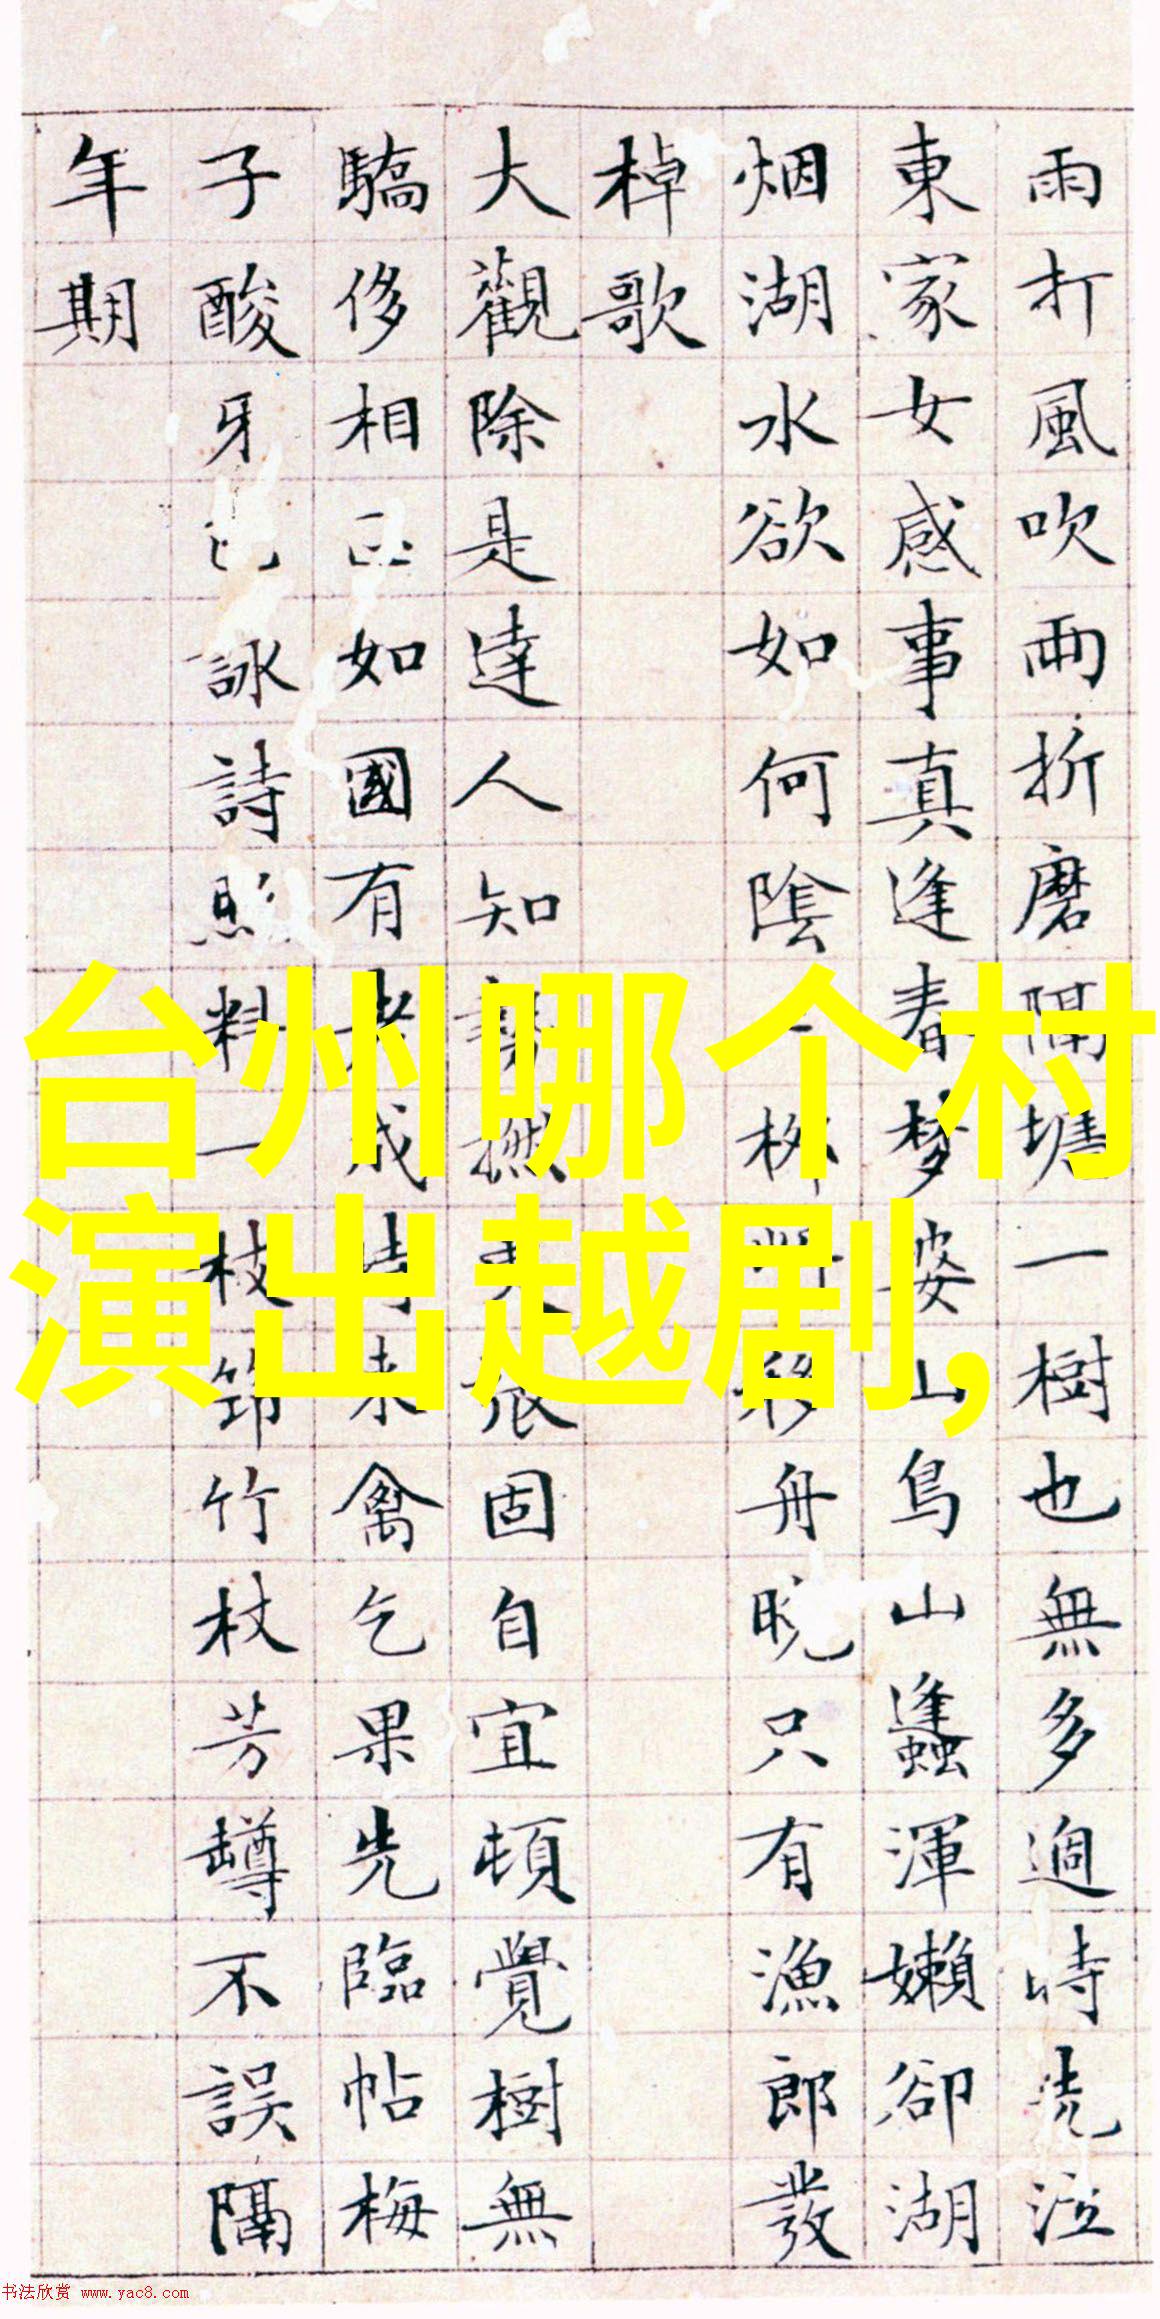 雨打風吹雨折磨隔塘一樹也無多過時洗泣
東家女感事真逢春夢婆山鳥山蠭渾嬾卻湖
烟湖水欲如何陰移舟晚只有漁郎發
棹歌
大觀除是達人知固自宜頓覺樹無
驕侈相如國有老成禽乞果先臨帖梅
子酸牙詠詩料一枝筇竹杖芳罇不誤隔
年期
台州哪个村
演出越剧,
书法欣赏 www.yac8.com